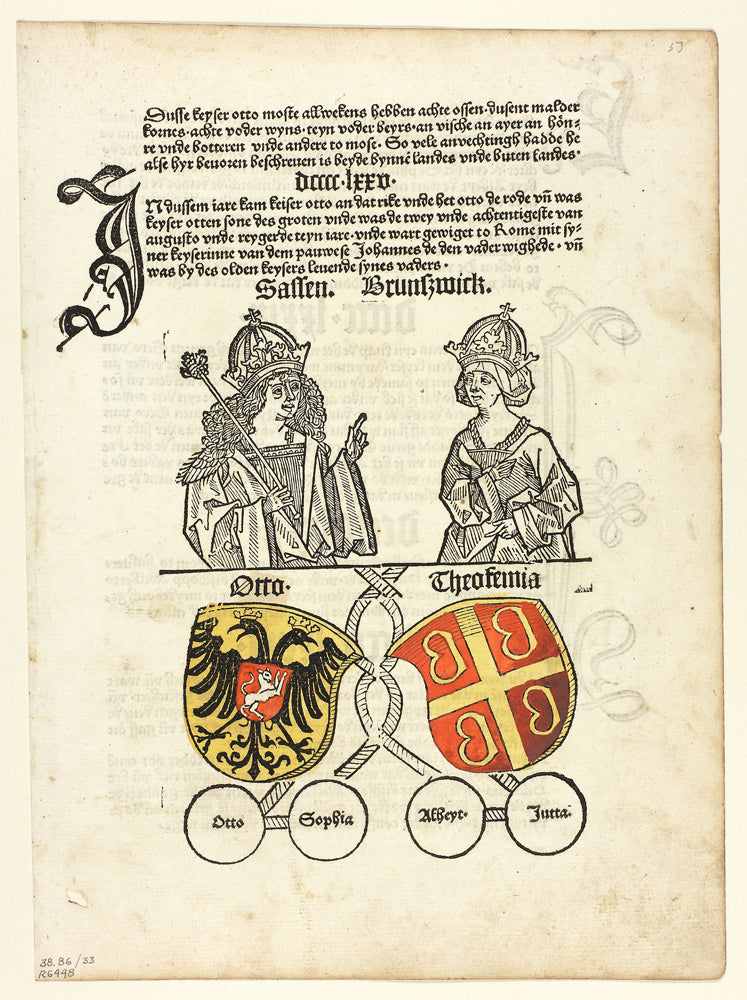 53
Dusse keyser otto moste allwekens hebben achte ossen· dusent malder
kornes· achte voder wyns· teyn voder beyrs· an vische an ayer an hon-
re vnde botteren vnde andere to mose· So vele anvechtingh hadde he
alse hyr beuoren beschreuen is beyde bynnē landes vnde buten landes·
dcccc·lxxv·
IN dussem iare kam keiser otto an dat rike vnde het otto de rode vn̄ was
keyser otten sone des groten vnde was de twey vnde achtentigeste van
augusto vnde reygerde teyn iare· vnde wart gewiget to Rome mit sy-
ner keyserinne van dem pauwese Johannes de den vader wighede· vn̄
was by des olden keysers leuende synes vaders·
Sassen. Brunszwick.
Otto· Theofemia
Otto Sophia Alheyt· Jutta·
38.86/33
R6498